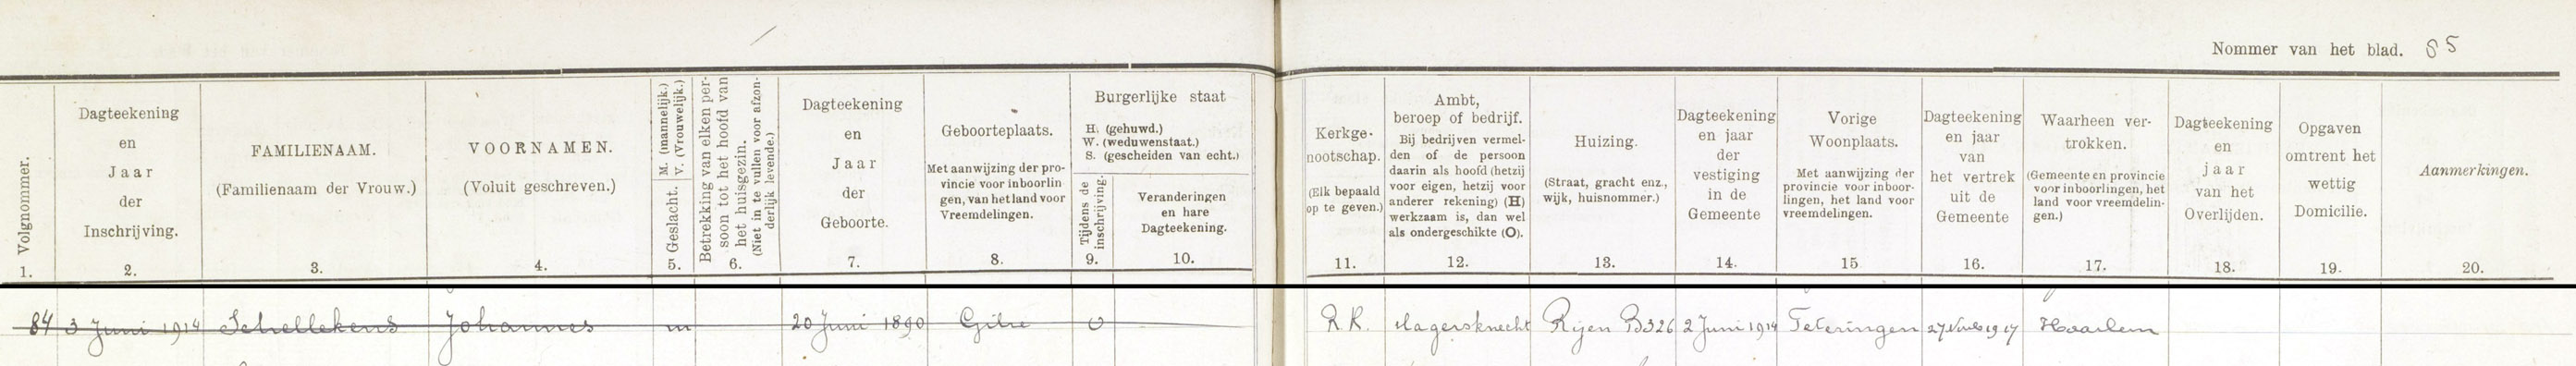 Nommer van het blad. 85
Volgnommer.
1.
Dagteekening
en
Jaar
der
Inschrijving.
2.
FAMILIENAAM.
(Familienaam der Vrouw.)
3.
VOORNAMEN.
(Voluit geschreven.)
4.
M. (mannelijk.)
V. (Vrouwelijk.)
Geslacht.
5.
Betrekking van elken per-
soon tot het hoofd van
het huisgezin.
(Niet in te vullen voor afzon-
derlijk levende.)
6.
Dagteekening
en
Jaar
der
Geboorte.
7.
Geboorteplaats.
Met aanwijzing der pro-
vincie voor inboorlin
gen, van het land voor
Vreemdelingen.
8.
Burgerlijke staat
H. (gehuwd.)
W. (weduwenstaat.)
S. (gescheiden van echt.)
Tijdens de
inschrijving.
9.
Veranderingen
en hare
Dagteekening.
10.
Kerkge-
nootschap.
(Elk bepaald
op te geven.)
11.
Ambt,
beroep of bedrijf.
Bij bedrijven vermel-
den of de persoon
daarin als hoofd (hetzij
voor eigen, hetzij voor
anderer rekening) (H)
werkzaam is, dan wel
als ondergeschikte (O).
12.
Huizing.
(Straat, gracht enz.,
wijk, huisnommer.)
13.
Dagteekening
en jaar
der
vestiging
in de
Gemeente
14.
Vorige
Woonplaats.
Met aanwijzing der
provincie voor inboor-
lingen, het land voor
vreemdelingen.
15
Dagteekening
en jaar
van
het vertrek
uit de
Gemeente
16.
Waarheen ver-
trokken.
(Gemeente en provincie
voor inboorlingen, het
land voor vreemdelin-
gen.)
17.
Dagteekening
en
jaar
van het
Overlijden.
18.
Opgaven
omtrent het
wettig
Domicilie.
19.
Aanmerkingen.
20.
84 3 Juni 1914 Schellekens Johannes m 20 Juni 1890 Gilze O R.K. slagersknecht Rijen B326 2 Juni 1914 Teteringen 1917 Haarlem